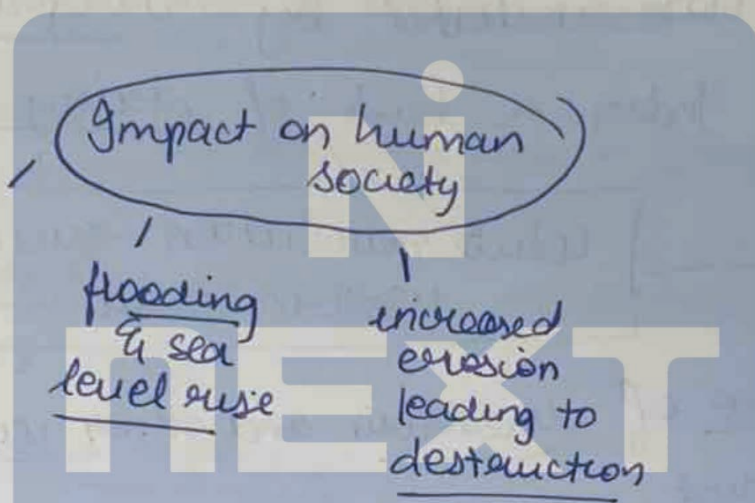 Impact on human
society
flooding
& sea
level rise
increased
erosion
leading to
destruction
NEXT